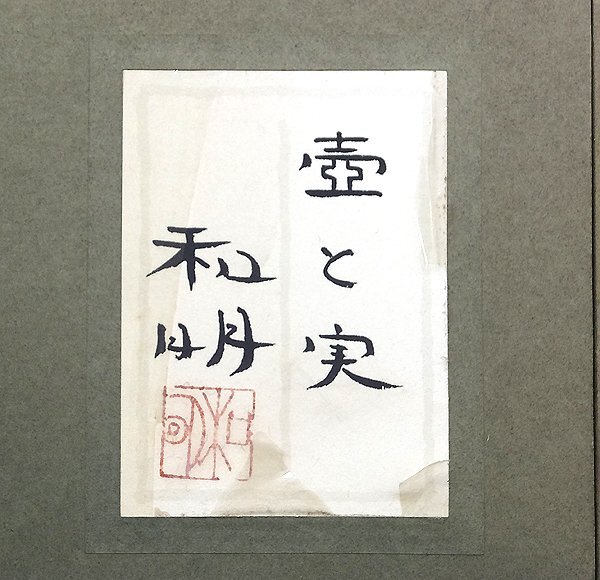 壺と実
和明